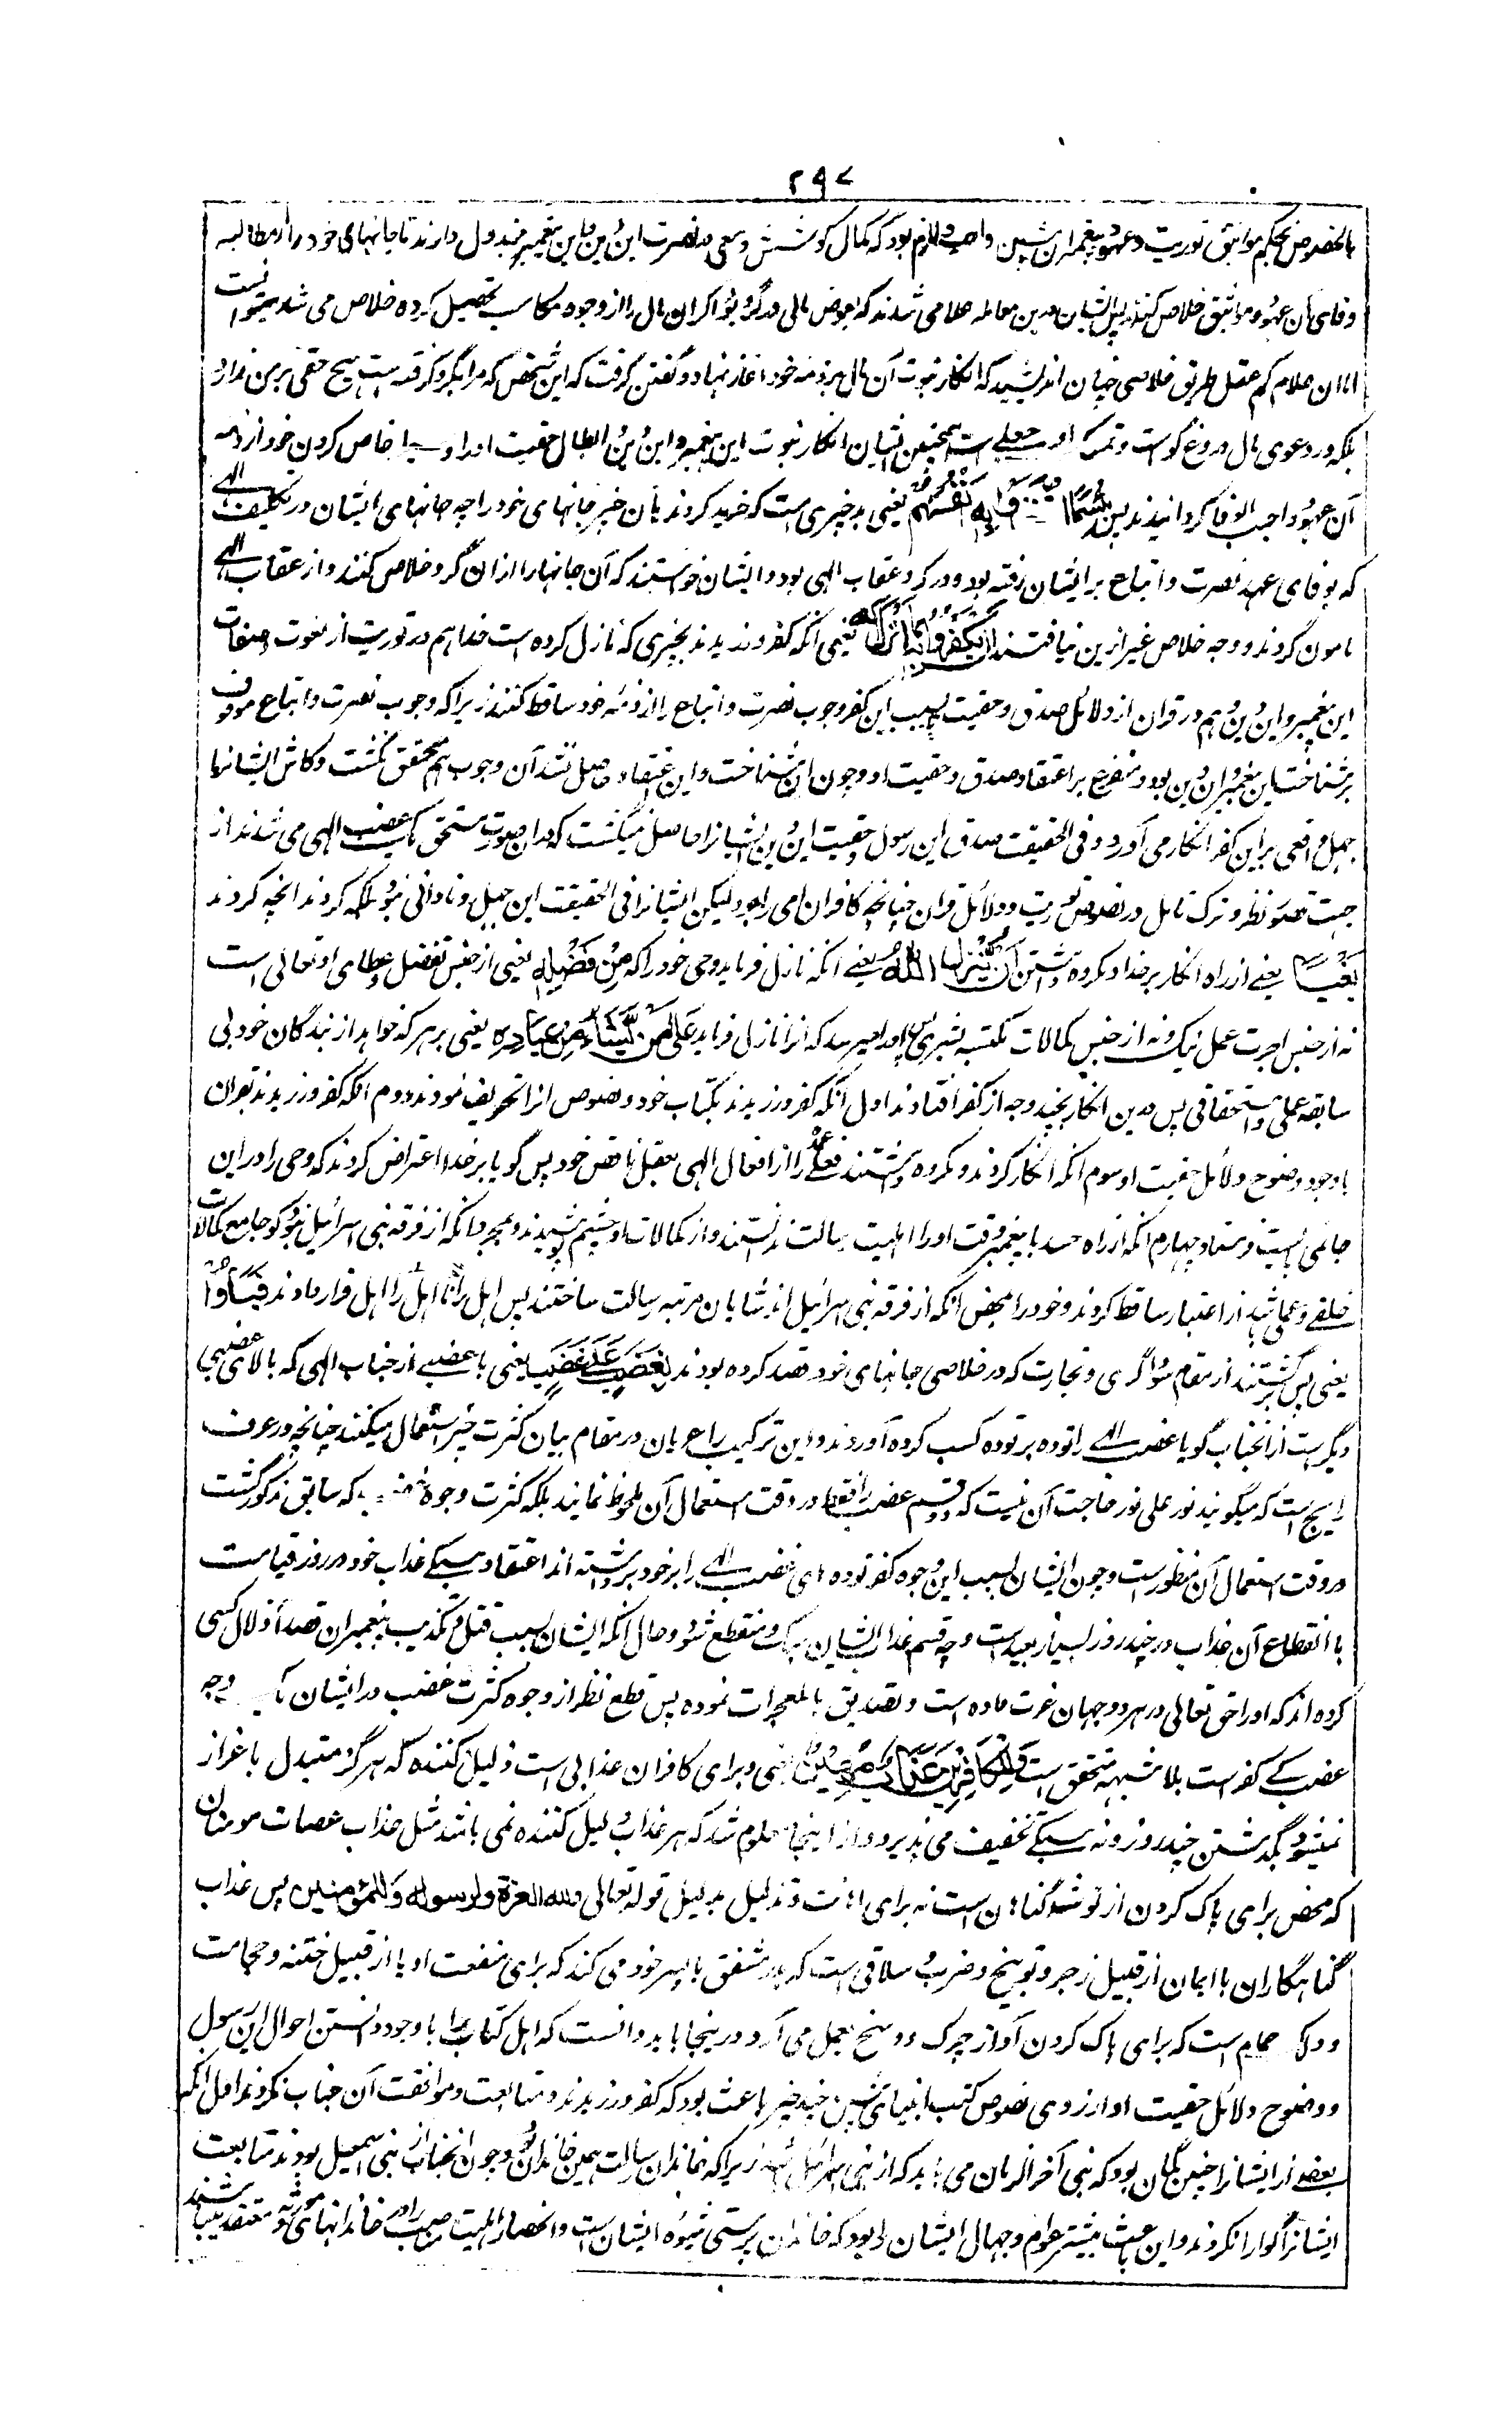 ۲۹۷
بالخصوص بحکم مواثیق توریت و عهود پیغمبران پیشین واجب و لازم بود که کمال کوشش و سعی در نصرت این دین و این پیغمبر مبذول دارند تا جانهای خود را از مطالبه
وفای آن عهود و مواثیق خلاص کنند پس ایشان درین معامله غلامی شدند که بعوض مالی در گرو بود اگر آن مال را از وجوه مکاسب تحصیل کرده خلاص می شد میتوانست
اما آن غلام کم عقل طریق خلاصی چنان اندیشید که انکار ثبوت آن مال بر ذمه خود آغاز نهاد و گفتن گرفت که این شخص که مرا بگرو گرفته است هیچ حقی بر من ندارد
بلکه در دعوی مال دروغ گوست و تمسک او جعلی است همچنین ایشان انکار نبوت این پیغمبر و این دین و ابطال حقیت او را خلاص کردن خود از ذمه
آن عهود واجب الوفا گردانیدند پس بِئْسَمَا اشْتَرَوْا بِهِ أَنْفُسَهُمْ یعنی بد چیزی است که خرید کردند بآن خبر جانهای خود را چه جانهای ایشان در تکلیف الهی
که بوفای عهد نصرت و اتباع بر ایشان رفته بود و در گرو عقاب الهی بود و ایشان خواستند که آن جانها را از ان گرو خلاص کنند و از عقاب الهی
مامون گردند و وجه خلاص غیر ازین نیافتند أَنْ يَكْفُرُوا بِمَا أَنْزَلَ اللّٰهُ یعنی آنکه کفر ورزیدند بچیزی که نازل کرده است خدا هم در توریت از نعوت و صفات
این پیغمبر و این دین و هم در قرآن از دلائل صدق و حقیت بسبب این کفر وجوب نصرت و اتباع را از ذمه خود ساقط کنند زیرا که وجوب نصرت و اتباع موقوف
بر شناخت این پیغمبر و این دین بود و متفرع بر اعتقاد صدق و حقیت او و چون این شناخت و این اعتقاد حاصل نشد آن وجوب هم متحقق نگشت و کاش ایشانرا
جهل واقعی بر این کفر و انکار می آورد و فی الحقیقت صدق این رسول و حقیت این دین ایشانرا حاصل نمیگشت که در ان صورت مستحق یک غضب الهی می شدند از
جهت قصور نظر و ترک تامل در نصوص توریت و دلائل قرآن چنانچه کافران امی را بود لیکن ایشانرا فی الحقیقت این جهل و نادانی نبود بلکه کردند آنچه کردند
بَغْيًا یعنی از راه انکار بر خدا و مکروه داشتن أَنْ يُنَزِّلَ اللّٰهُ یعنی آنکه نازل فرماید وحی خود را که مِنْ فَضْلِهِ یعنی از جنس تفضل و عطای او تعالی است
نه از جنس اجرت عمل نیک و نه از جنس کمالات مکتسبه بشری پس او را میرسد که آنرا نازل فرماید عَلَىٰ مَنْ يَشَاءُ مِنْ عِبَادِهِ یعنی بر هر که خواهد از بندگان خود بی
سابقه عملی و استحقاقی پس درین انکار بچند وجه از کفر افتادند اول آنکه کفر ورزیدند بکتاب خود و نصوص آنرا تحریف نمودند دوم آنکه کفر ورزیدند بقرآن
باوجود وضوح دلائل حقیت او سوم آنکه انکار کردند و مکروه داشتند فعلی را از افعال الهی بعقل ناقص خود پس گویا بر خدا اعتراض کردند که وحی را در این
جا نمی بایست فرستاد چهارم آنکه از راه حسد با پیغمبر وقت او را اهلیت رسالت ندانستند و از کمالات او چشم پوشیدند و بمجرد آنکه از فرقه بنی اسرائیل نبود گو جامع کمالات
خلقی و عملی باشد از اعتبار ساقط کردند و خود را بمحض آنکه از فرقه بنی اسرائیل اند شایان مرتبه رسالت ساختند پس اهل را نااهل و نااهل را اهل قرار دادند فَبَاءُوا
یعنی پس برگشتند از مقام سوداگری و تجارت که در خلاصی جانهای خود قصد کرده بودند بِغَضَبٍ عَلَىٰ غَضَبٍ یعنی با غضبی از جناب الهی که بالای غضبی
دیگر ست از انجناب گویا غضب الهی را توده بر توده کسب کرده آوردند و این ترکیب را عربیان در مقام بیان کثرت چیز استعمال میکنند چنانچه در عرف
رایج است که میگویند نور علی نور حاجت آن نیست که دو قسم غضب را فقط در وقت استعمال آن ملحوظ نمایند بلکه کثرت وجوه که سابق مذکور گشت
در وقت استعمال آن منظور است و چون ایشان بسبب این وجوه کفر توده های غضب الهی را بر خود برداشته اند اعتقاد سبکی عذاب خود در روز قیامت
با انقطاع آن عذاب در چند روز بسیار بعید است و چه قسم عذاب ایشان سبک و منقطع شود حال آنکه ایشان بسبب قتل و تکذیب پیغمبران قصد اذلال کسی
کرده اند که او را حق تعالی در هر دو جهان عزت داده است و تصدیق بالمعجزات نموده پس قطع نظر از وجوه کثرت غضب در ایشان یک وجه
غضب که کفر است بلا شبهه متحقق است وَلِلْكَافِرِينَ عَذَابٌ مُهِينٌ یعنی و برای کافران عذابی است ذلیل کننده که هرگز متبدل باعزاز
نمیشود بگذشتن چند روز و نه سبکی و تخفیف می پذیرد و از اینجا معلوم شد که هر عذاب ذلیل کننده نمی باشد مثل عذاب عصات مومنان
که محض برای پاک کردن از لوث گناهان است نه برای اهانت و تذلیل بدلیل قوله تعالی وللہ العزۃ ولرسولہ وللمؤمنین پس عذاب
گناهگاران باایمان از قبیل زجر و توبیخ و ضرب و سلاقی است که پدر مشفق با پسر خود می کند که برای منفعت او یا از قبیل ختنه و حجامت
و دلک حمام است که برای پاک کردن او از چرک و وسخ بعمل می آرد درینجا باید دانست که اهل کتاب را باوجود دانستن احوال این رسول
و وضوح دلائل حقیت او از روی نصوص کتب انبیای پیشین چند چیز باعث بود که کفر ورزیدند و متابعت و موافقت آن جناب نکردند اول آنکه
بعضی از ایشانرا چنین گمان بود که نبی آخر الزمان می باید که از بنی اسرائیل باشد زیرا که خاندان رسالت همین خاندان بود و چون آنجناب از بنی اسمعیل بودند متابعت
ایشانرا گوارا نکردند و این باعث بیشتر عوام و جهال ایشان را بود که خاندان پرستی شیوه ایشان است و انحصار اهلیت هر مراد را در خاندانهای موروثه معتقد میباشند